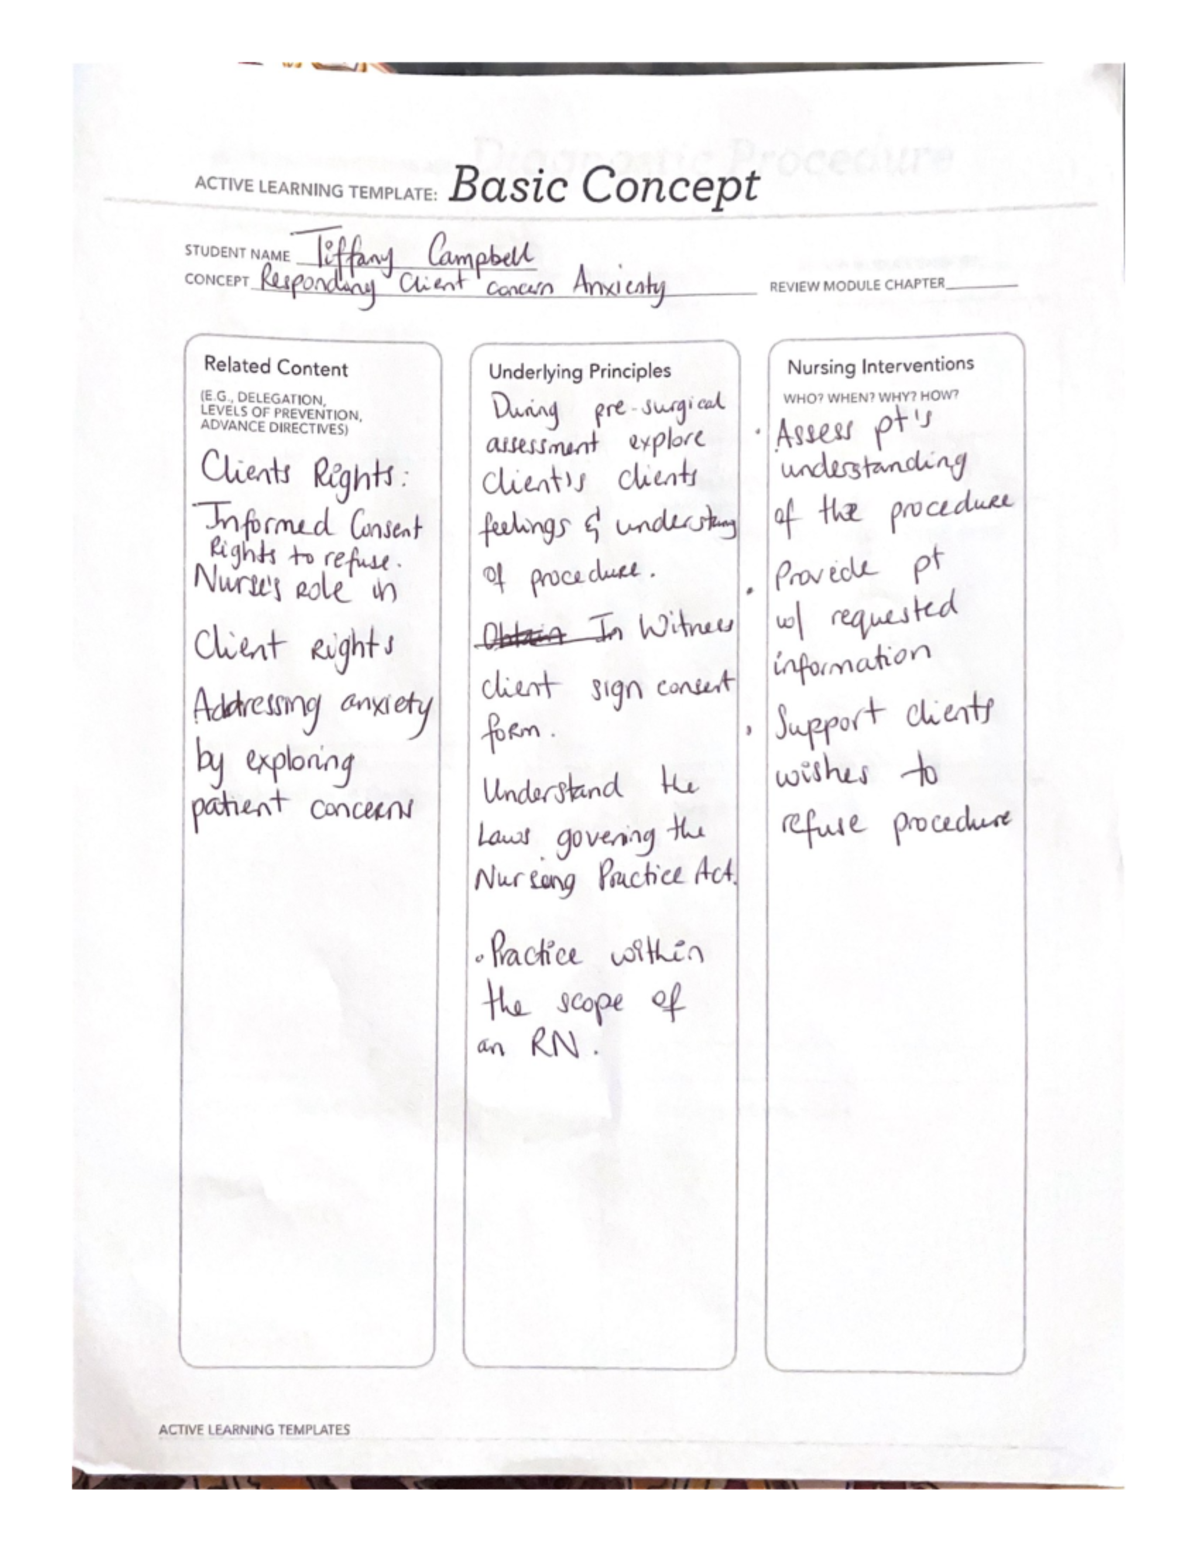 ACTIVE LEARNING TEMPLATE: Basic Concept
STUDENT NAME Tiffany Campbell
CONCEPT Responding Client concern Anxienty
REVIEW MODULE CHAPTER
Related Content
(E.G., DELEGATION,
LEVELS OF PREVENTION,
ADVANCE DIRECTIVES)
Clients Rights:
Informed Consent
Rights to refuse.
Nurse's Role in
Client Rights
Addressing anxiety
by exploring
patient concerns
Underlying Principles
During pre-surgical
assessment explore
client's clients
feelings & understang
of procedure.
Obtain In Witness
client sign consent
form.
Understand the
Laws govering the
Nursing Practice Act.
• Practice within
the scope of
an RN.
Nursing Interventions
WHO? WHEN? WHY? HOW?
• Assess pt's
understanding
of the procedure
• Provide pt
w/ requested
information
• Support clients
wishes to
refuse procedure
ACTIVE LEARNING TEMPLATES